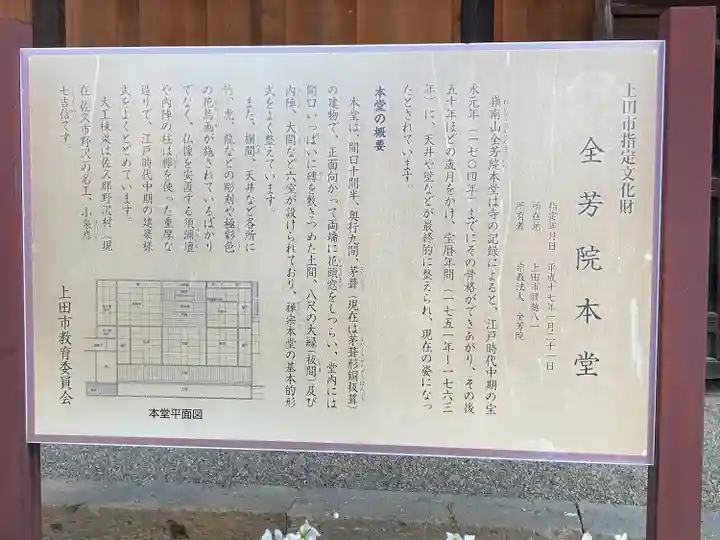 上田市指定文化財
全芳院本堂
指定年月日 平成十七年一月二十一日
所在地 上田市腰越八一
所有者 宗教法人 全芳院
嶺南山全芳院本堂は寺の記録によると、江戸時代中期の宝
永元年(一七〇四年)までにその骨格ができあがり、その後
五十年ほどの歳月をかけ、宝暦年間(一七五一年ー一七六三
年)に、天井や壁などが最終的に整えられ、現在の姿になっ
たとされています。
本堂の概要
本堂は、間口十間半、奥行九間、茅葺(現在は茅葺形銅板葺)
の建物で、正面向かって両端に花頭窓をしつらい、堂内には
間口いっぱいに磚を敷きつめた土間、八尺の大縁(板間)及び
内陣、大間など六室が設けられており、禅宗本堂の基本的形
式をよく整えています。
また、欄間、天井など各所に
竹、虎、龍などの彫刻や極彩色
の花鳥画が施されているばかり
でなく、仏像を安置する須弥壇
や内陣の柱は欅を使った重厚な
造りで、江戸時代中期の建築様
式をよくとどめています。
大工棟梁は佐久郡野沢村(現
在佐久市野沢)の名工、小泉彦
七吉信です。
本堂平面図
上田市教育委員会